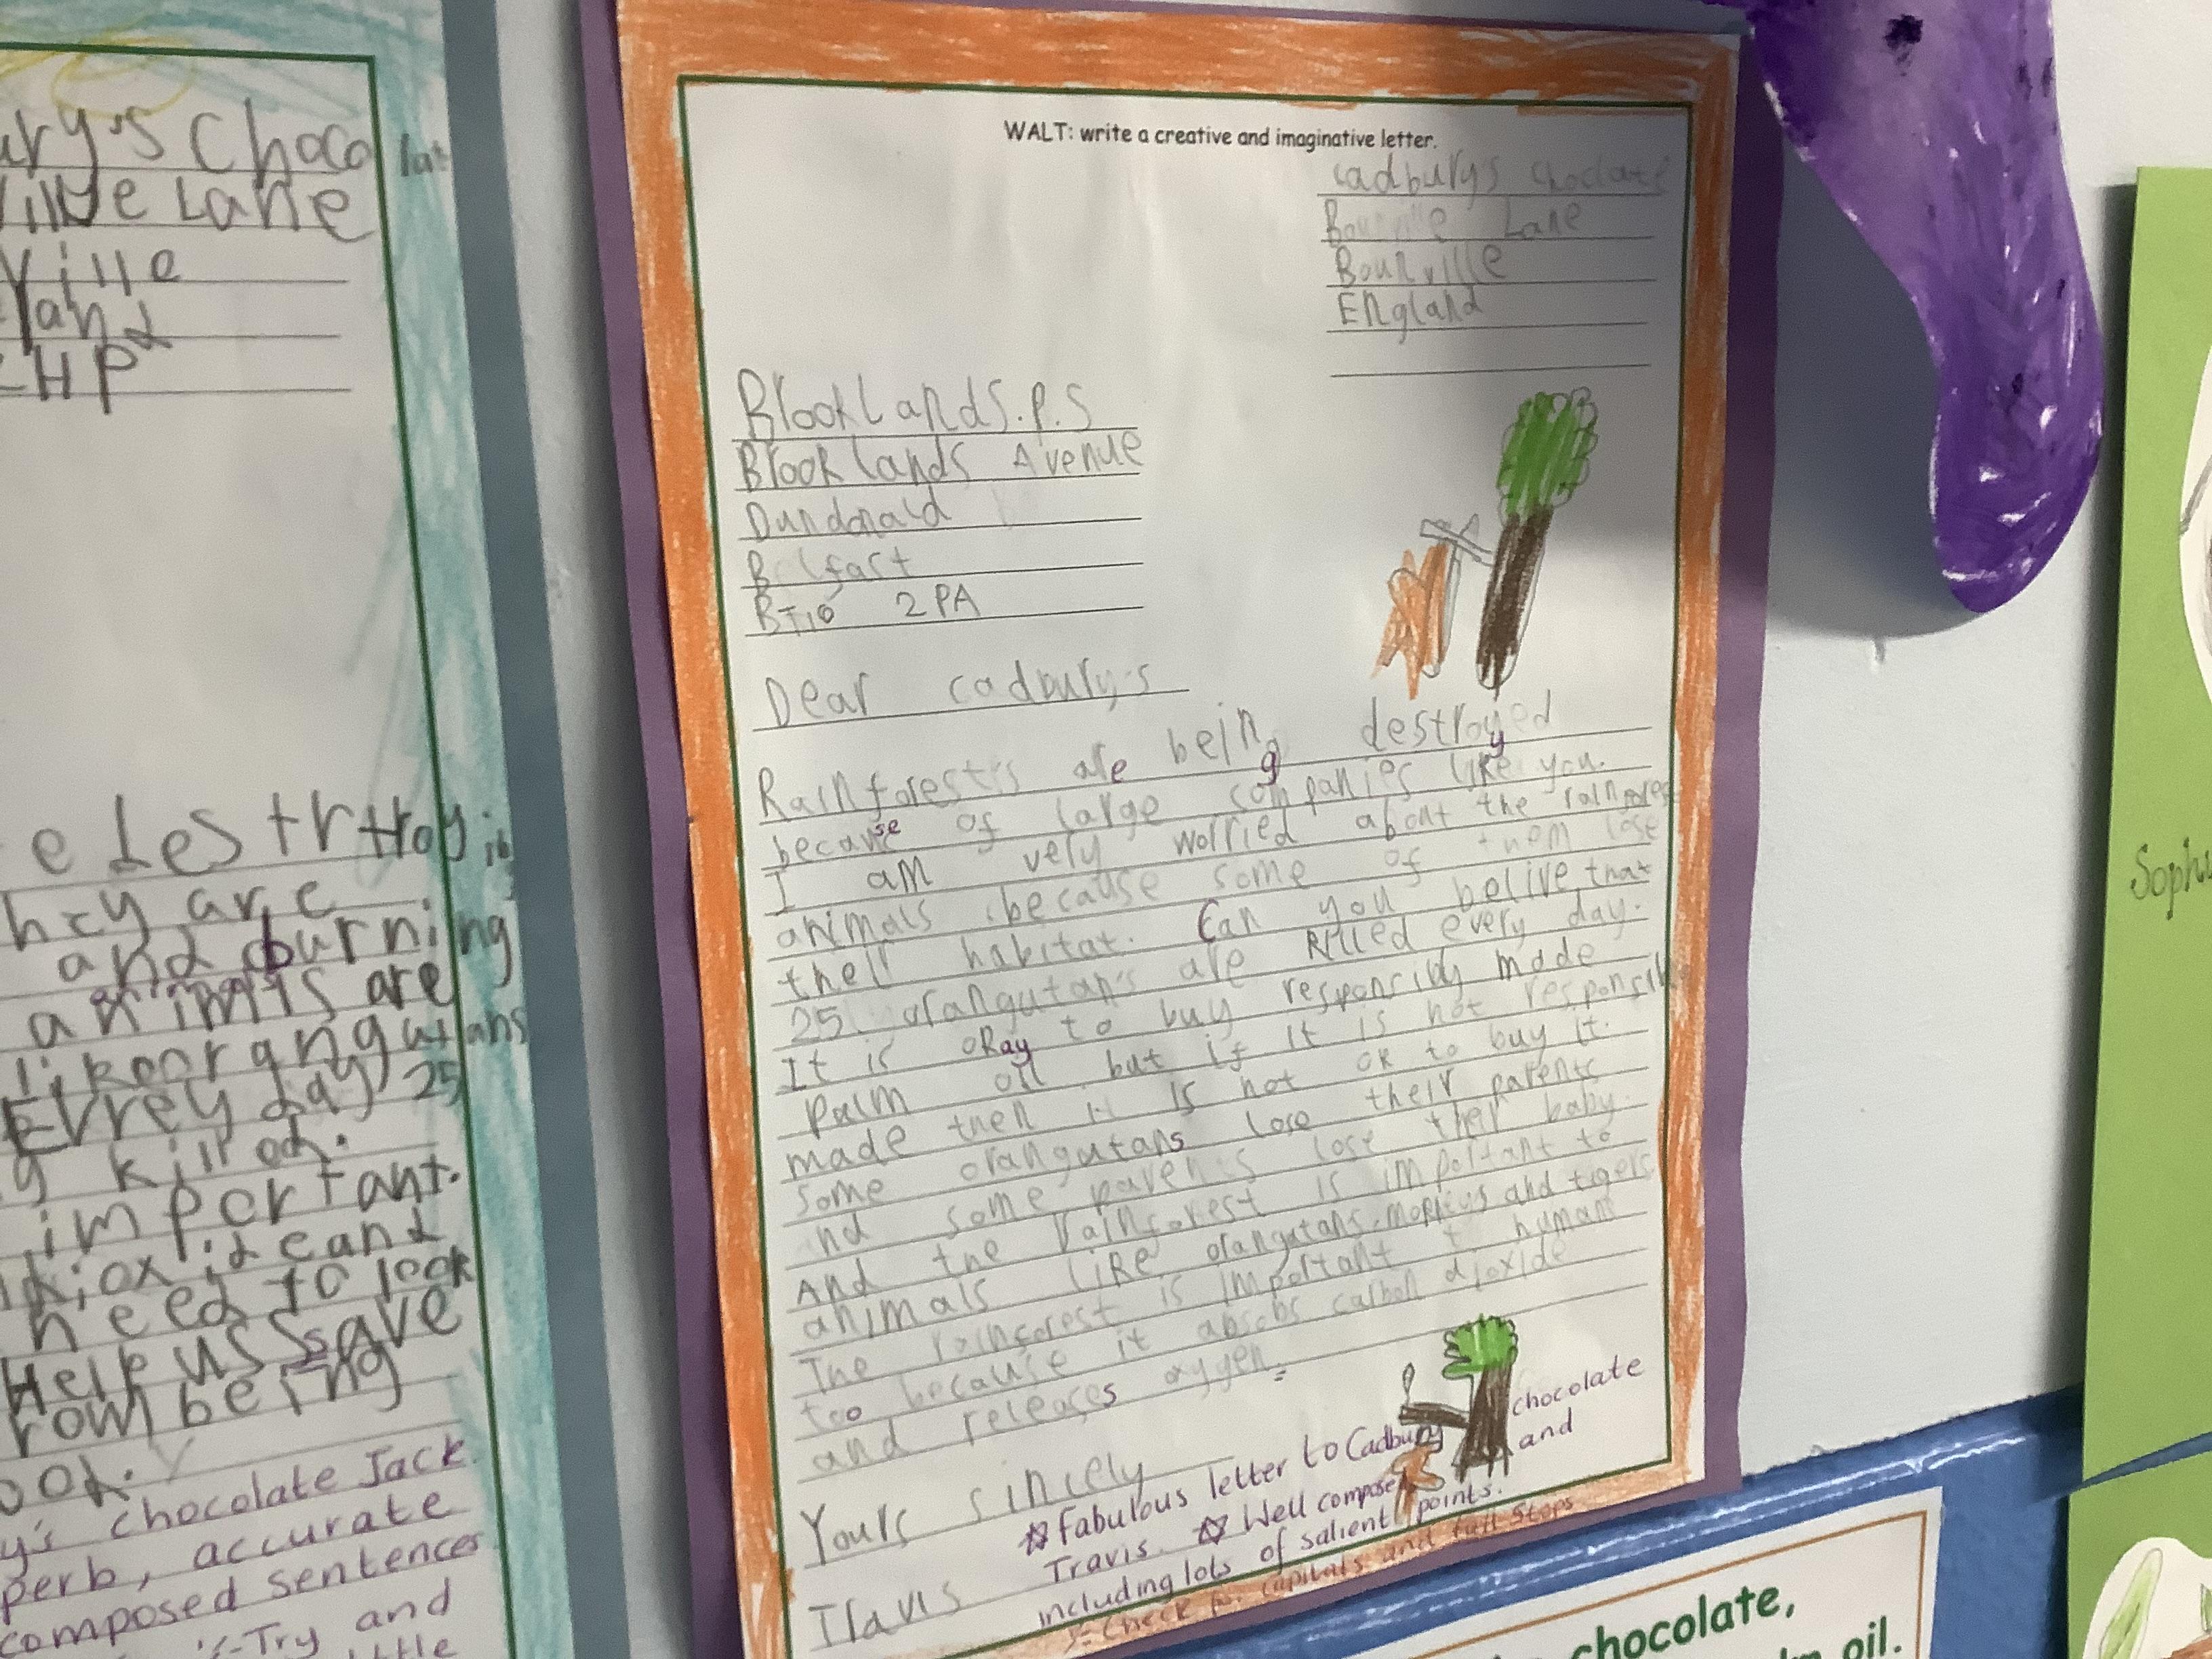 ury's Chocolat
ville Lane
ville
land
HP
e destrtroyin
they are
and burning
animals are
like orangutans
Evrey day 25
killed.
important.
dioxide and
need to look
Help us save
from being
y's chocolate Jack.
perb, accurate
composed sentences
Try and
WALT: write a creative and imaginative letter.
cadbury's choclate
Bournville Lane
Bournville
England
Brooklands.P.S
Brooklands Avenue
Dundonald
Belfast
BT16 2PA
Dear cadbury's
Rainforest's are being destroyed
because of large companies like you.
I am very worried about the rainforest
animals because some of them lose
their habitat. Can you belive that
25 orangutan's are killed every day.
It is okay to buy responsibly made
palm oil but if it is not responsibl
made then it is not ok to buy it.
some orangutans lose their parents
nd some parents lose their baby.
And the rainforest is important to
animals like orangutans, monkeys and tigers
The rainforest is important t humans
too because it absobs carbon dioxide
and releases oxygen.
Yours sincely
Travis
☆ Fabulous letter to Cadbury chocolate
Travis. ☆ Well composed and
including lots of salient points.
Check for capitals and full stops
Sophi
chocolate,
oil.